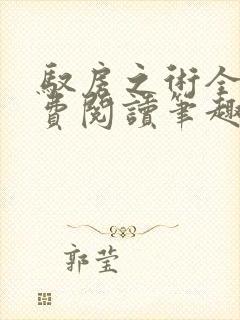 馭房之術全
費閱讀筆趣
郭莹